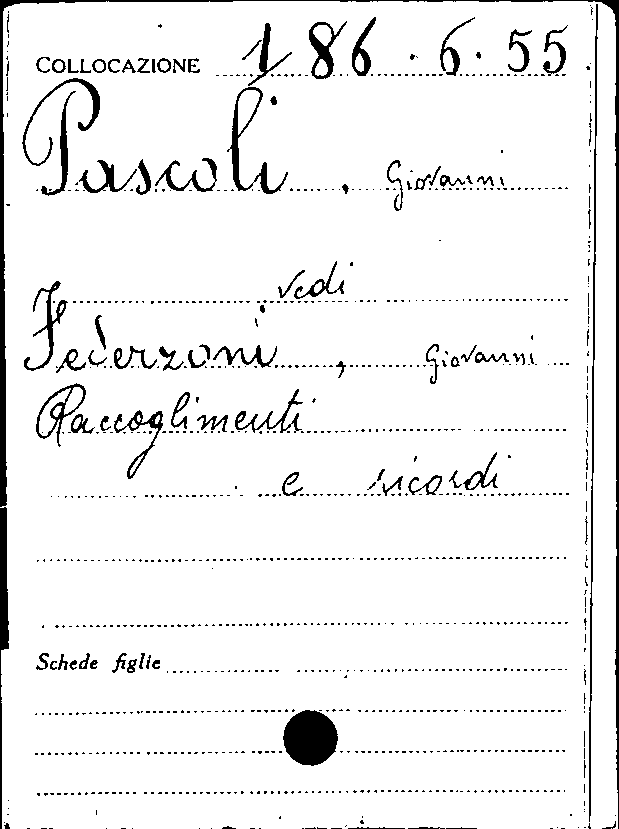 COLLOCAZIONE 186.6.55
Pascoli, Giovanni
vedi
Federzoni, Giovanni
Raccoglimenti
e ricordi
Schede figlie